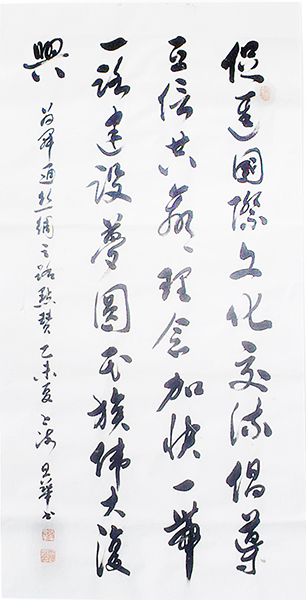 促進國際文化交流倡導
互信共贏理念加快一帶
一路建設夢圓民族偉大復
興
綢之路點贊 乙未夏 上海 華書